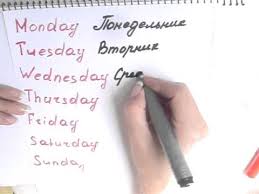 Monday Понедельник
Tuesday Вторник
Wednesday Сре
Thursday
Friday
Saturday
Sunday